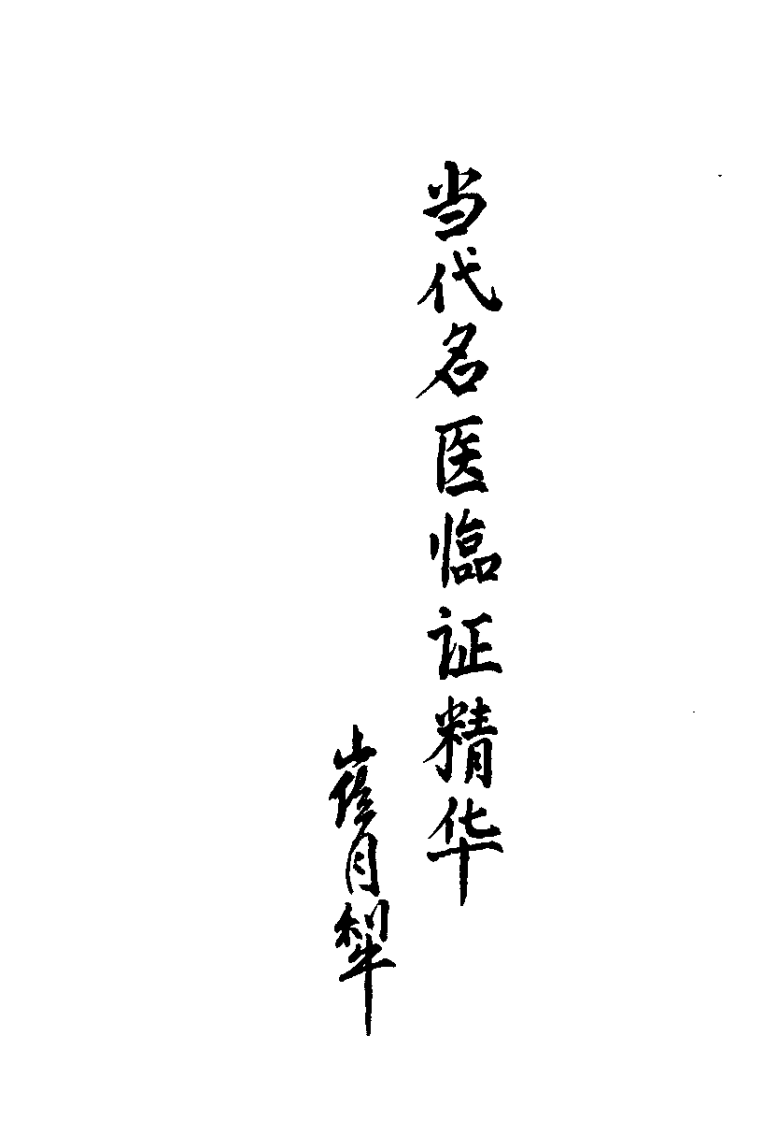 当代名医临证精华
崔月犂